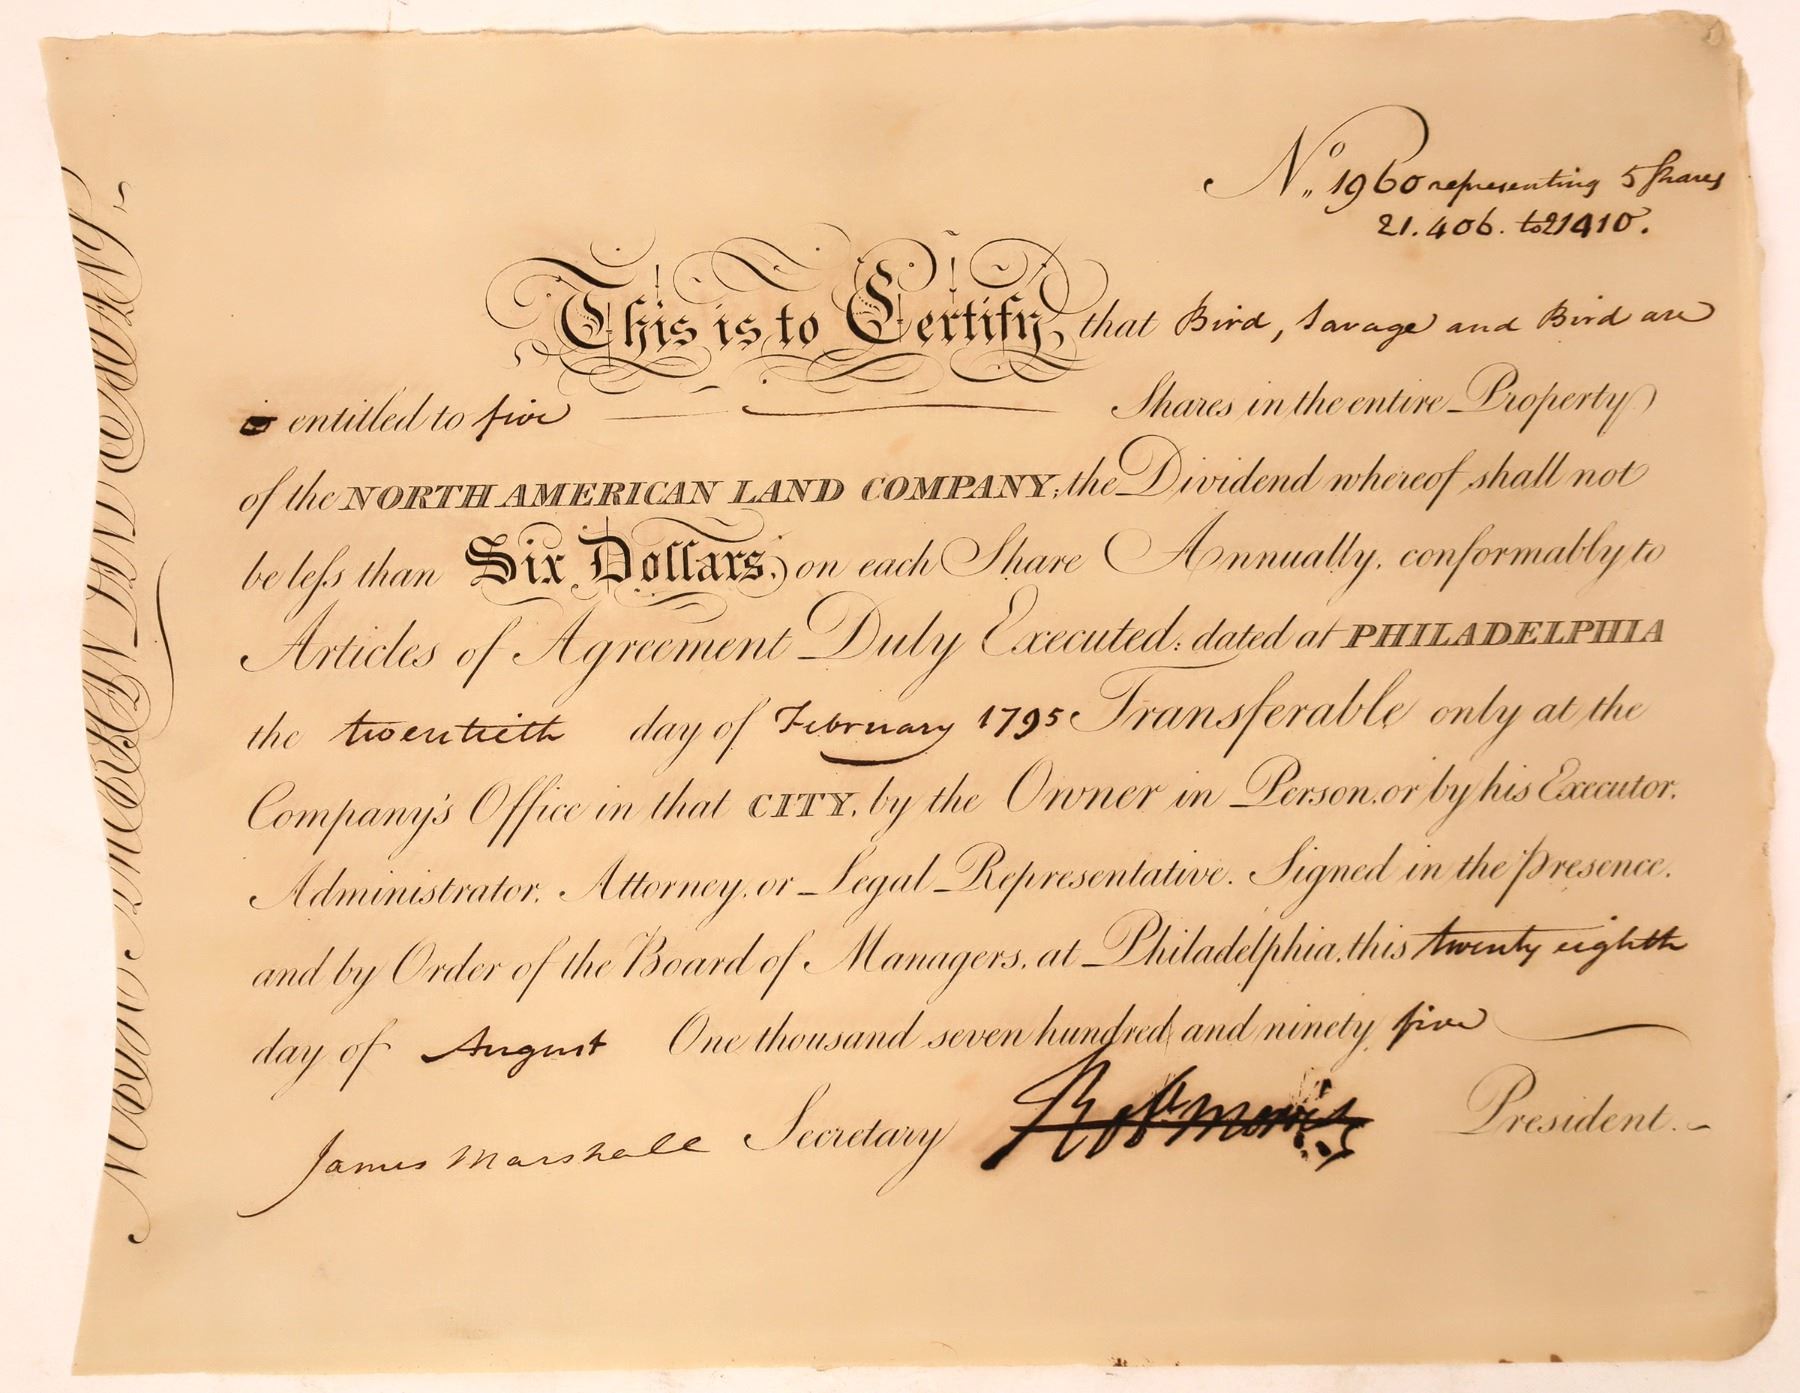 No. 1960 representing 5 Shares
21.406. to 21410.
This is to Certify, that Bird, Savage and Bird are
is entitled to five Shares in the entire Property
of the NORTH AMERICAN LAND COMPANY; the Dividend whereof shall not
be leſs than Six Dollars, on each Share Annually, conformably to
Articles of Agreement Duly Executed: dated at PHILADELPHIA
the twentieth day of February 1795 Transferable only at the
Company's Office in that CITY, by the Owner in Person, or by his Executor,
Administrator, Attorney, or Legal Representative. Signed in the presence,
and by Order of the Board of Managers, at Philadelphia, this twenty eighth
day of August One thousand seven hundred and ninety five
James Marshall Secretary Robt Morris President.